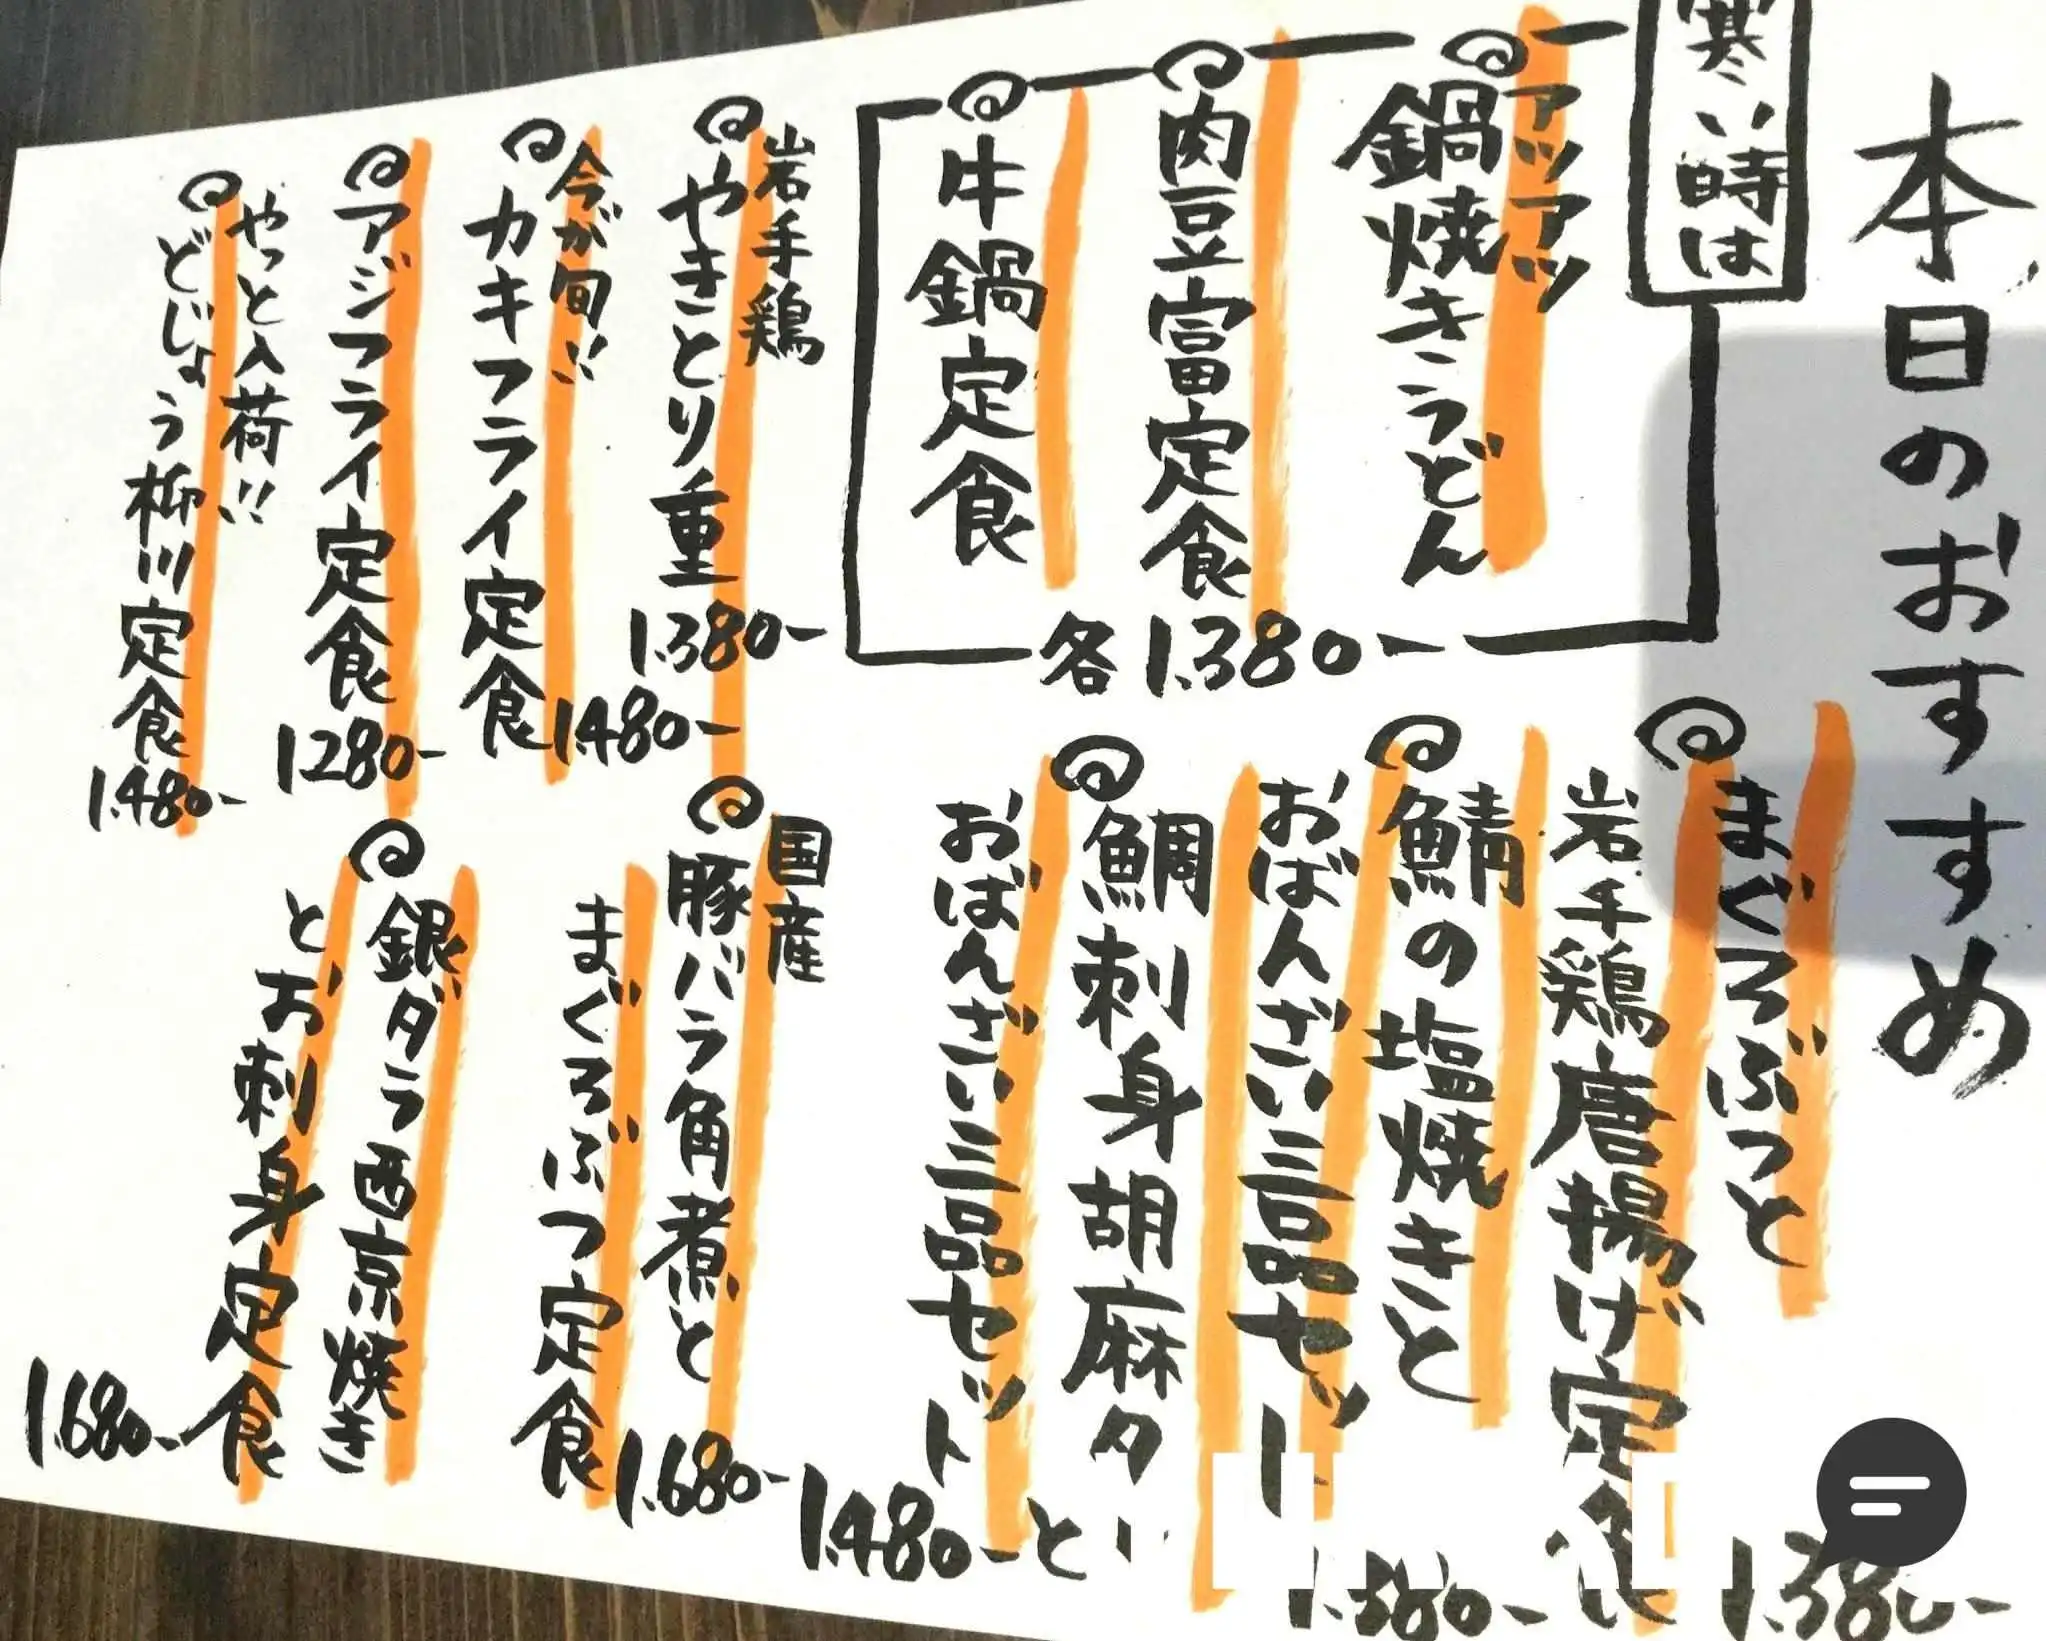 本日のおすすめ
寒い時は
アツアツ
鍋焼きうどん
肉豆富定食
牛鍋定食
各1.380-
岩手鶏
やきとり重
1.380-
今が旬!!
カキフライ定食
1.480-
アジフライ定食
1.280-
やっと入荷!!
どじょう柳川定食
1.480-
まぐろぶつと
岩手鶏唐揚げ定食
1.380-
鯖の塩焼きと
おばんざい三品セット
1.580-
鯛刺身胡麻タ
と
おばんざい三品セット
1.480-
国産
豚バラ角煮と
まぐろぶつ定食
1.680-
銀ダラ西京焼き
とお刺身定食
1.680-